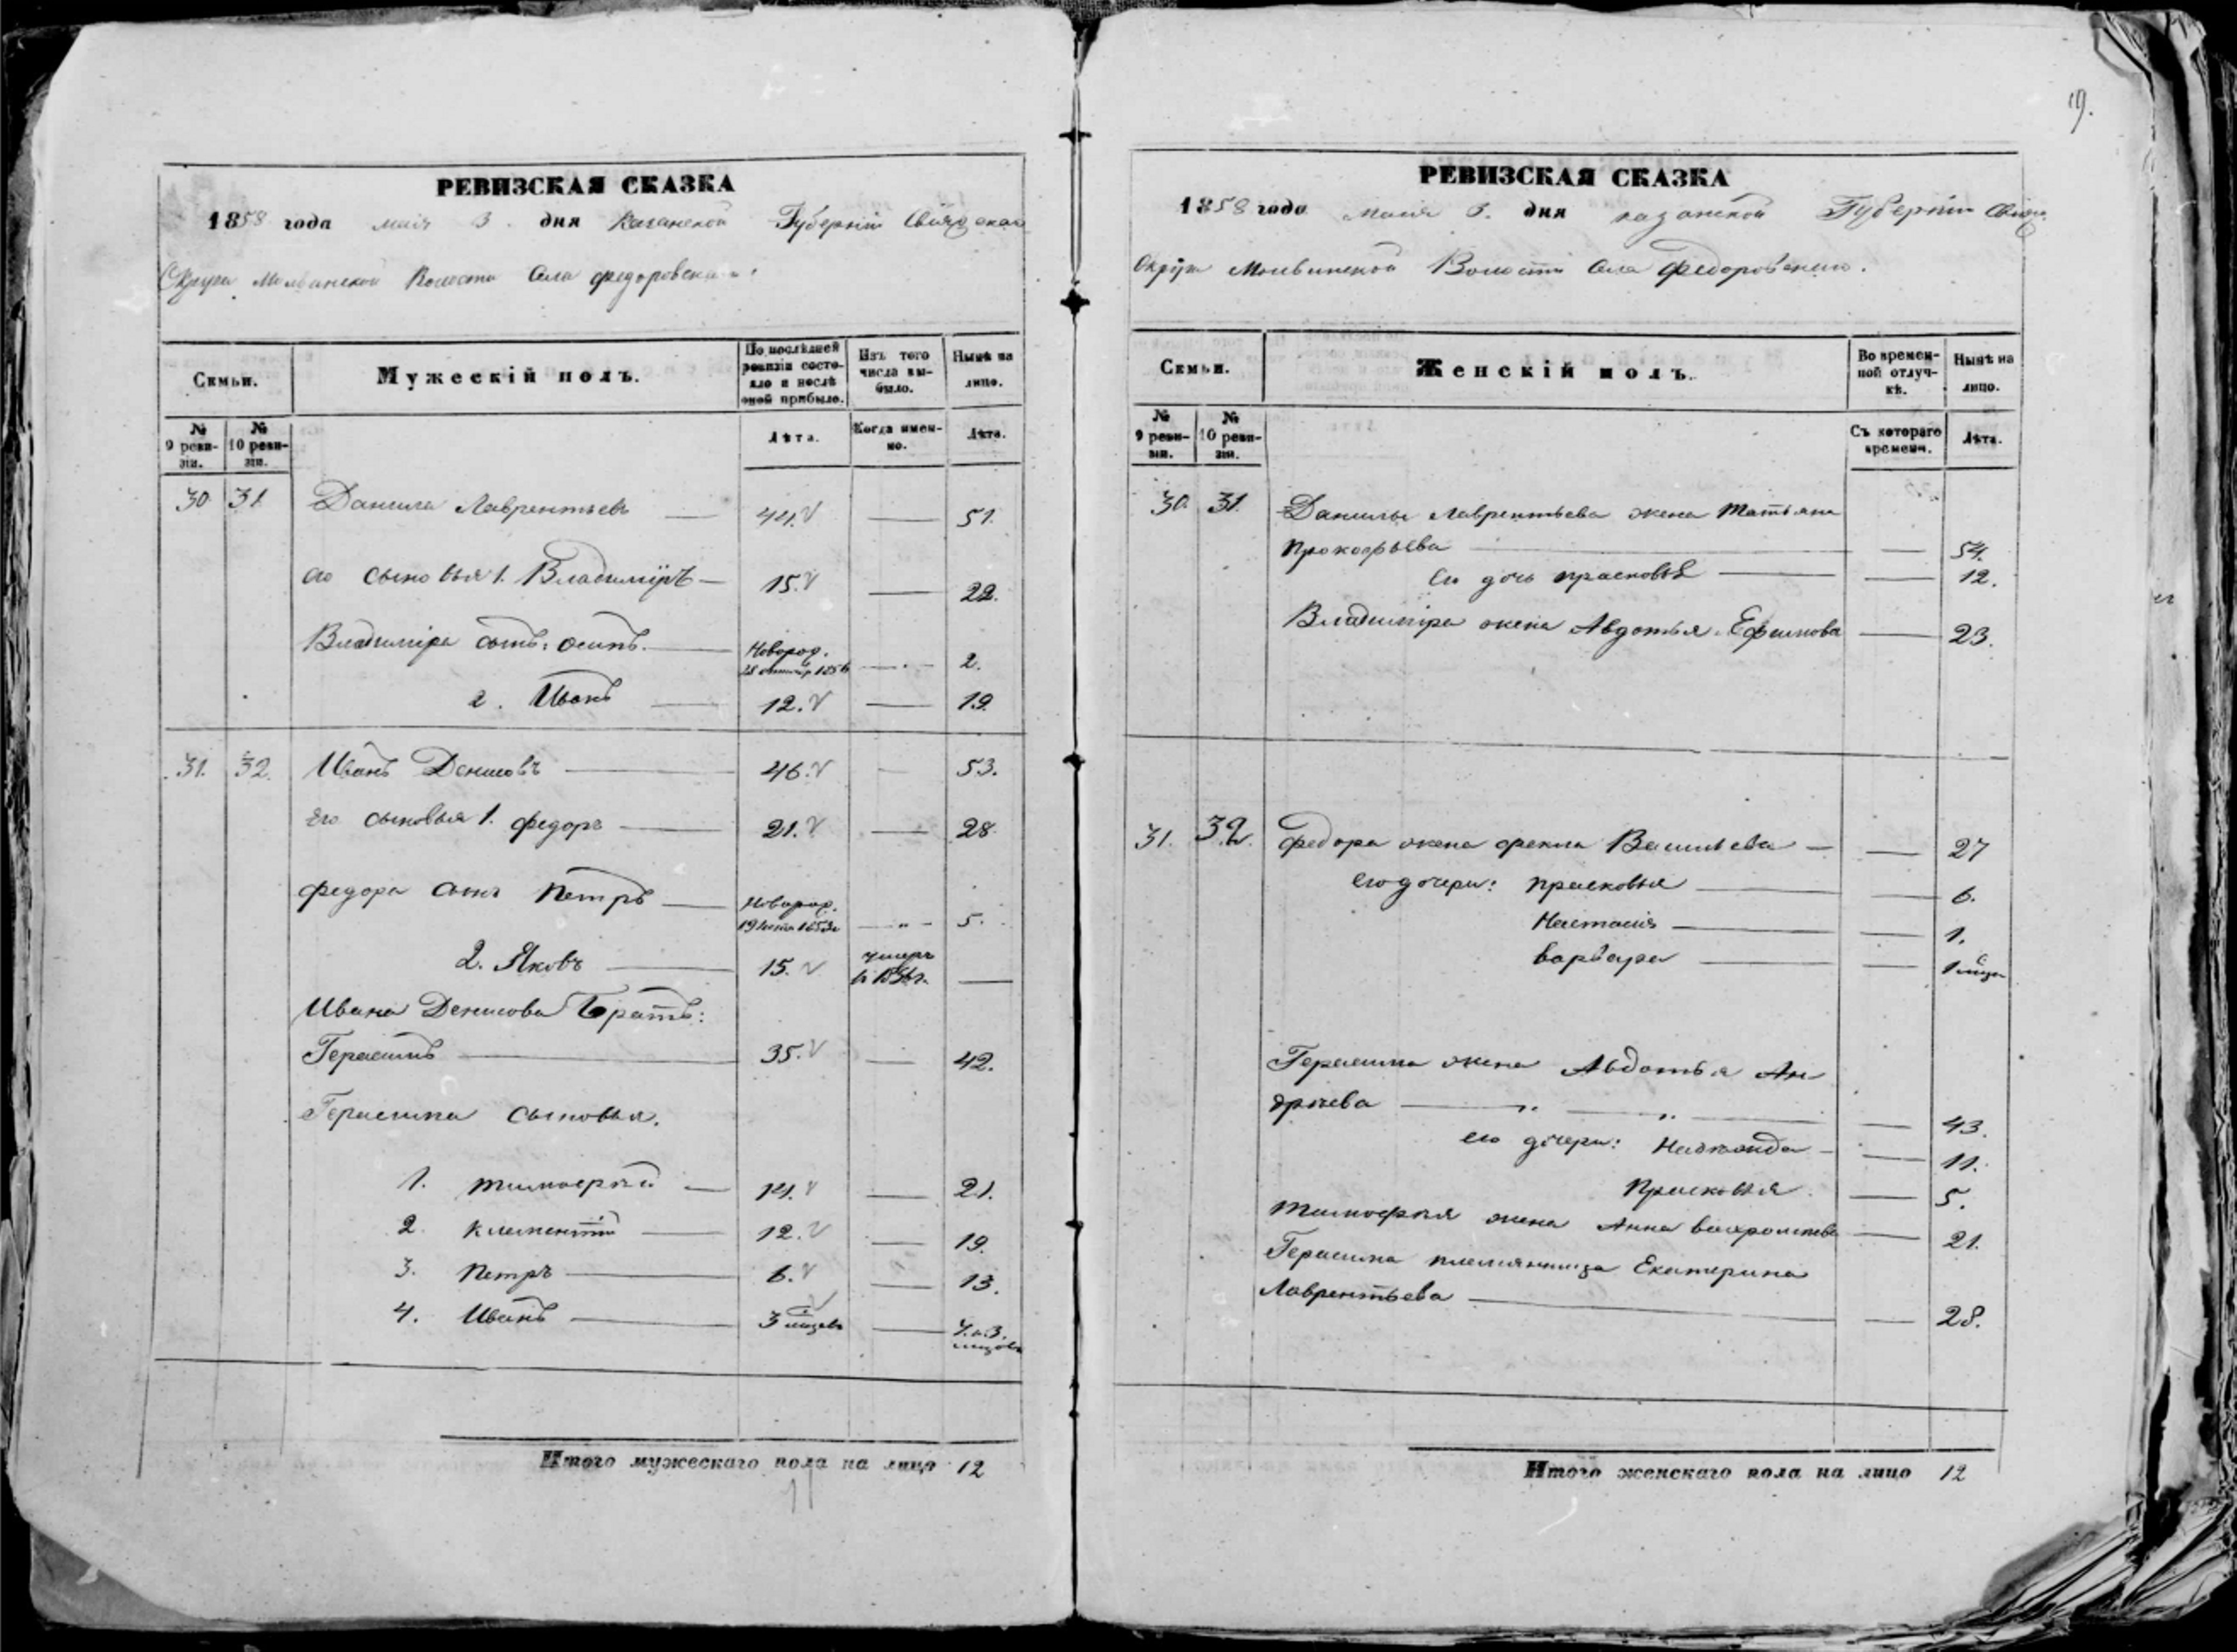 19.
РЕВИЗСКАЯ СКАЗКА
1858 года мая 3 дня Казанской Губерніи Свіяжскаго
Округа Молвинской Волости Села Федоровскаго
Семьи. Мужескій полъ. По послѣдней ревизіи состояло и послѣ оной прибыло. Изъ того числа выбыло. Нынѣ на лицо.
№ 9 ревизіи. № 10 ревизіи. Лѣта. Когда именно. Лѣта.
30 31 Данила Лаврентьевъ 44. 51.
его сыновья 1. Владиміръ 15. 22.
Владиміра сынъ: Осипъ. Новорож. 2.
2. Иванъ 12. 19.
31. 32. Иванъ Денисовъ 46. 53.
Его сыновья 1. Федоръ 21. 28.
Федора сынъ Петръ Новорож. 5.
2. Яковъ 15. умеръ
Ивана Денисова Братъ:
Герасимъ 35. 42.
Герасима сыновья.
1. Тимофѣй 14. 21.
2. Клементій 12. 19.
3. Петръ 6. 13.
4. Иванъ 3 мѣсяц. 7. и 3. мѣсяц.
Итого мужескаго пола на лицо 12
РЕВИЗСКАЯ СКАЗКА
1858 года мая 3. дня казанской Губерніи Свіяж.
Округа Молвинской Волости Села Федоровскаго.
Семьи. Женскій полъ. Во временной отлучкѣ. Нынѣ на лицо.
№ 9 ревизіи. № 10 ревизіи. Съ котораго времени. Лѣта.
30. 31. Данилы Лаврентьева жена Татьяна
Прокофьева 54.
Его дочь Прасковья 12.
Владиміра жена Авдотья Ефимова 23.
31. 32. Федора жена Фекла Васильева 27
Его дочери: Прасковья 6.
Настасія 1.
Варвара
Герасима жена Авдотья Ан-
дрѣева 43.
его дочери: Надежда 11.
Прасковья 5.
Тимофѣя жена Анна Вахромѣева 21.
Герасима племянница Екатерина
Лаврентьева 28.
Итого женскаго пола на лицо 12